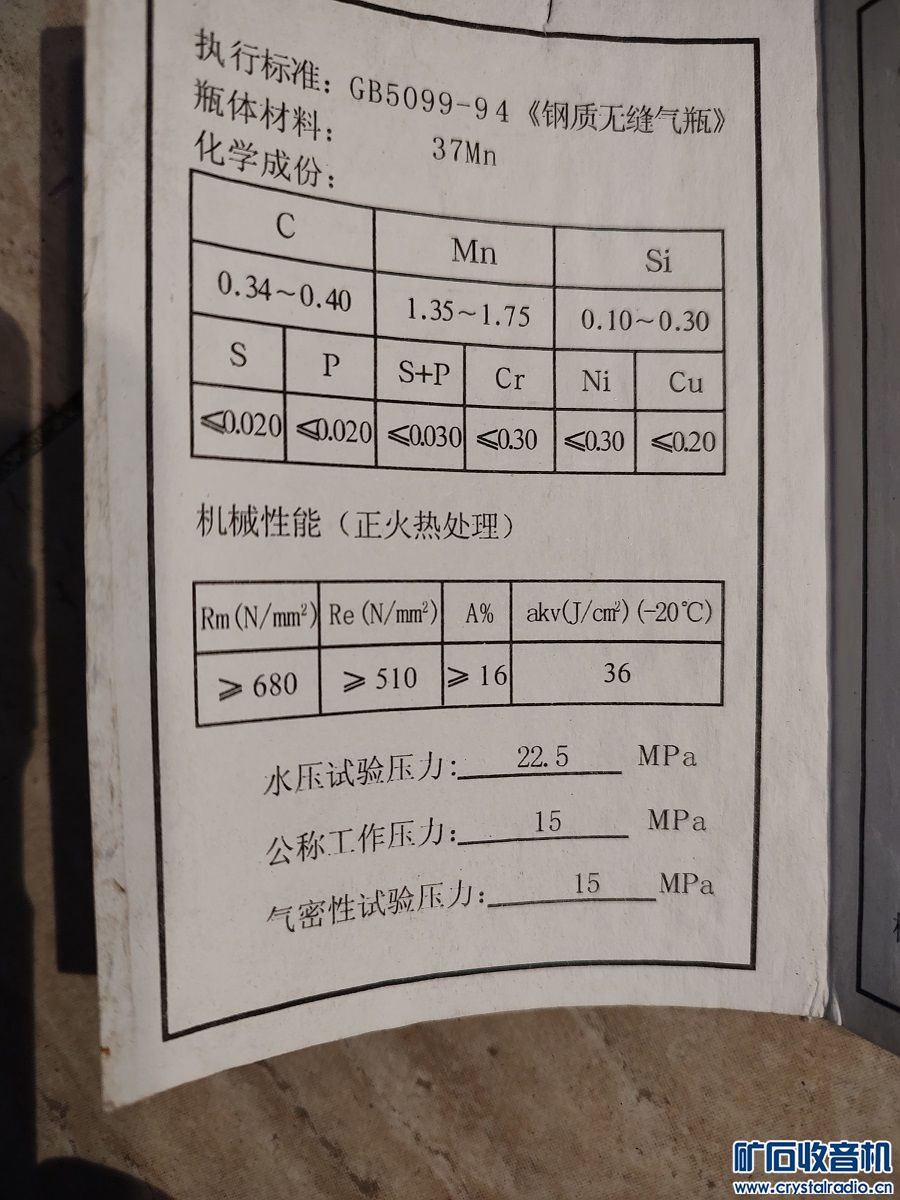 执行标准：GB5099-94《钢质无缝气瓶》
瓶体材料： 37Mn
化学成份：
C Mn Si
0.34～0.40 1.35～1.75 0.10～0.30
S P S+P Cr Ni Cu
≤0.020 ≤0.020 ≤0.030 ≤0.30 ≤0.30 ≤0.20
机械性能（正火热处理）
Rm(N/mm²) Re(N/mm²) A% akv(J/cm²)(-20℃)
≥680 ≥510 ≥16 36
水压试验压力: 22.5 MPa
公称工作压力: 15 MPa
气密性试验压力: 15 MPa
矿石收音机
www.crystalradio.cn